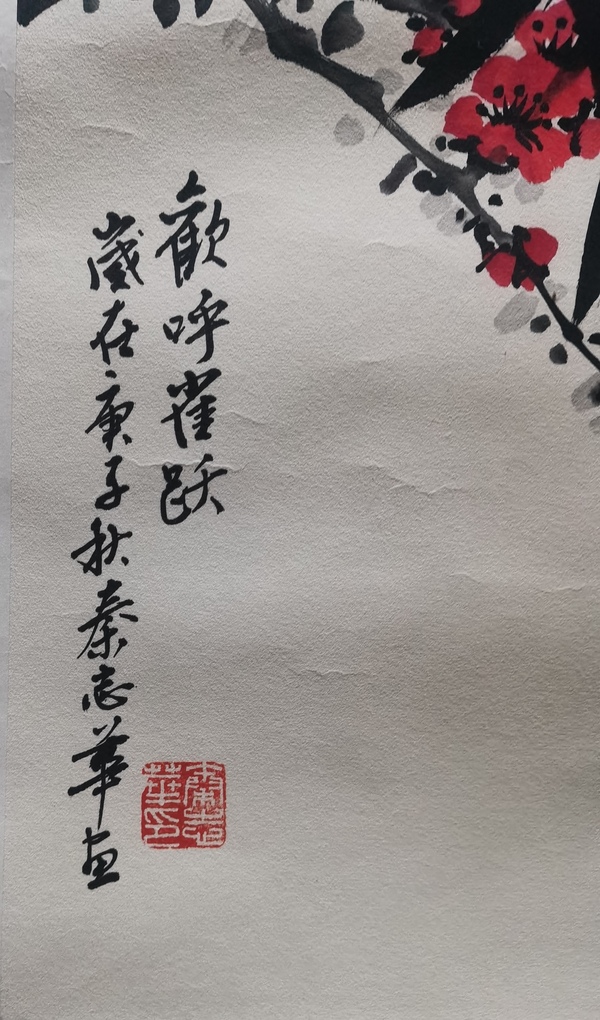 歡呼雀跃
歲在庚子秋秦志華画
秦志華印